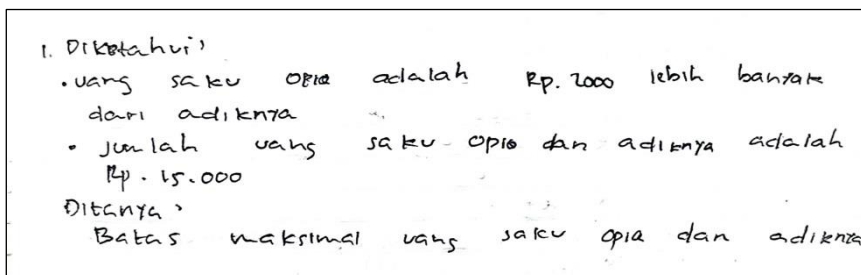 1. Diketahui,
• uang saku opia adalah Rp. 2000 lebih banyak
dari adiknya
• Jumlah uang saku opia dan adiknya adalah
Rp. 15.000
Ditanya,
Batas maksimal uang saku opia dan adiknya